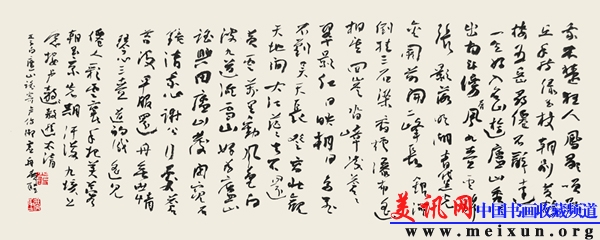 我本楚狂人鳳歌笑孔
丘手持綠玉杖朝別黃鶴
樓五岳尋仙不辭遠
一生好入名山遊廬山秀
出南斗傍屏風九疊雲錦
張影落明湖青黛光
金闕前開二峰長銀河
倒挂三石梁香爐瀑布遙
相望迴崖沓嶂凌蒼蒼
翠影紅霞映朝日鳥飛
不到吳天長登高壯觀
天地間大江茫茫去不還
黃雲萬里動風色白
波九道流雪山好為廬山
謠興因廬山發閒窺石
鏡清我心謝公行處蒼
苔沒早服還丹無世情
琴心三疊道初成遙見
僊人彩雲裏手把芙蓉
朝玉京先期汗漫九垓上
願接盧敖遊太清
廬山謠寄盧侍御虛舟
美讯网 中国书画收藏频道
www.meixun.org